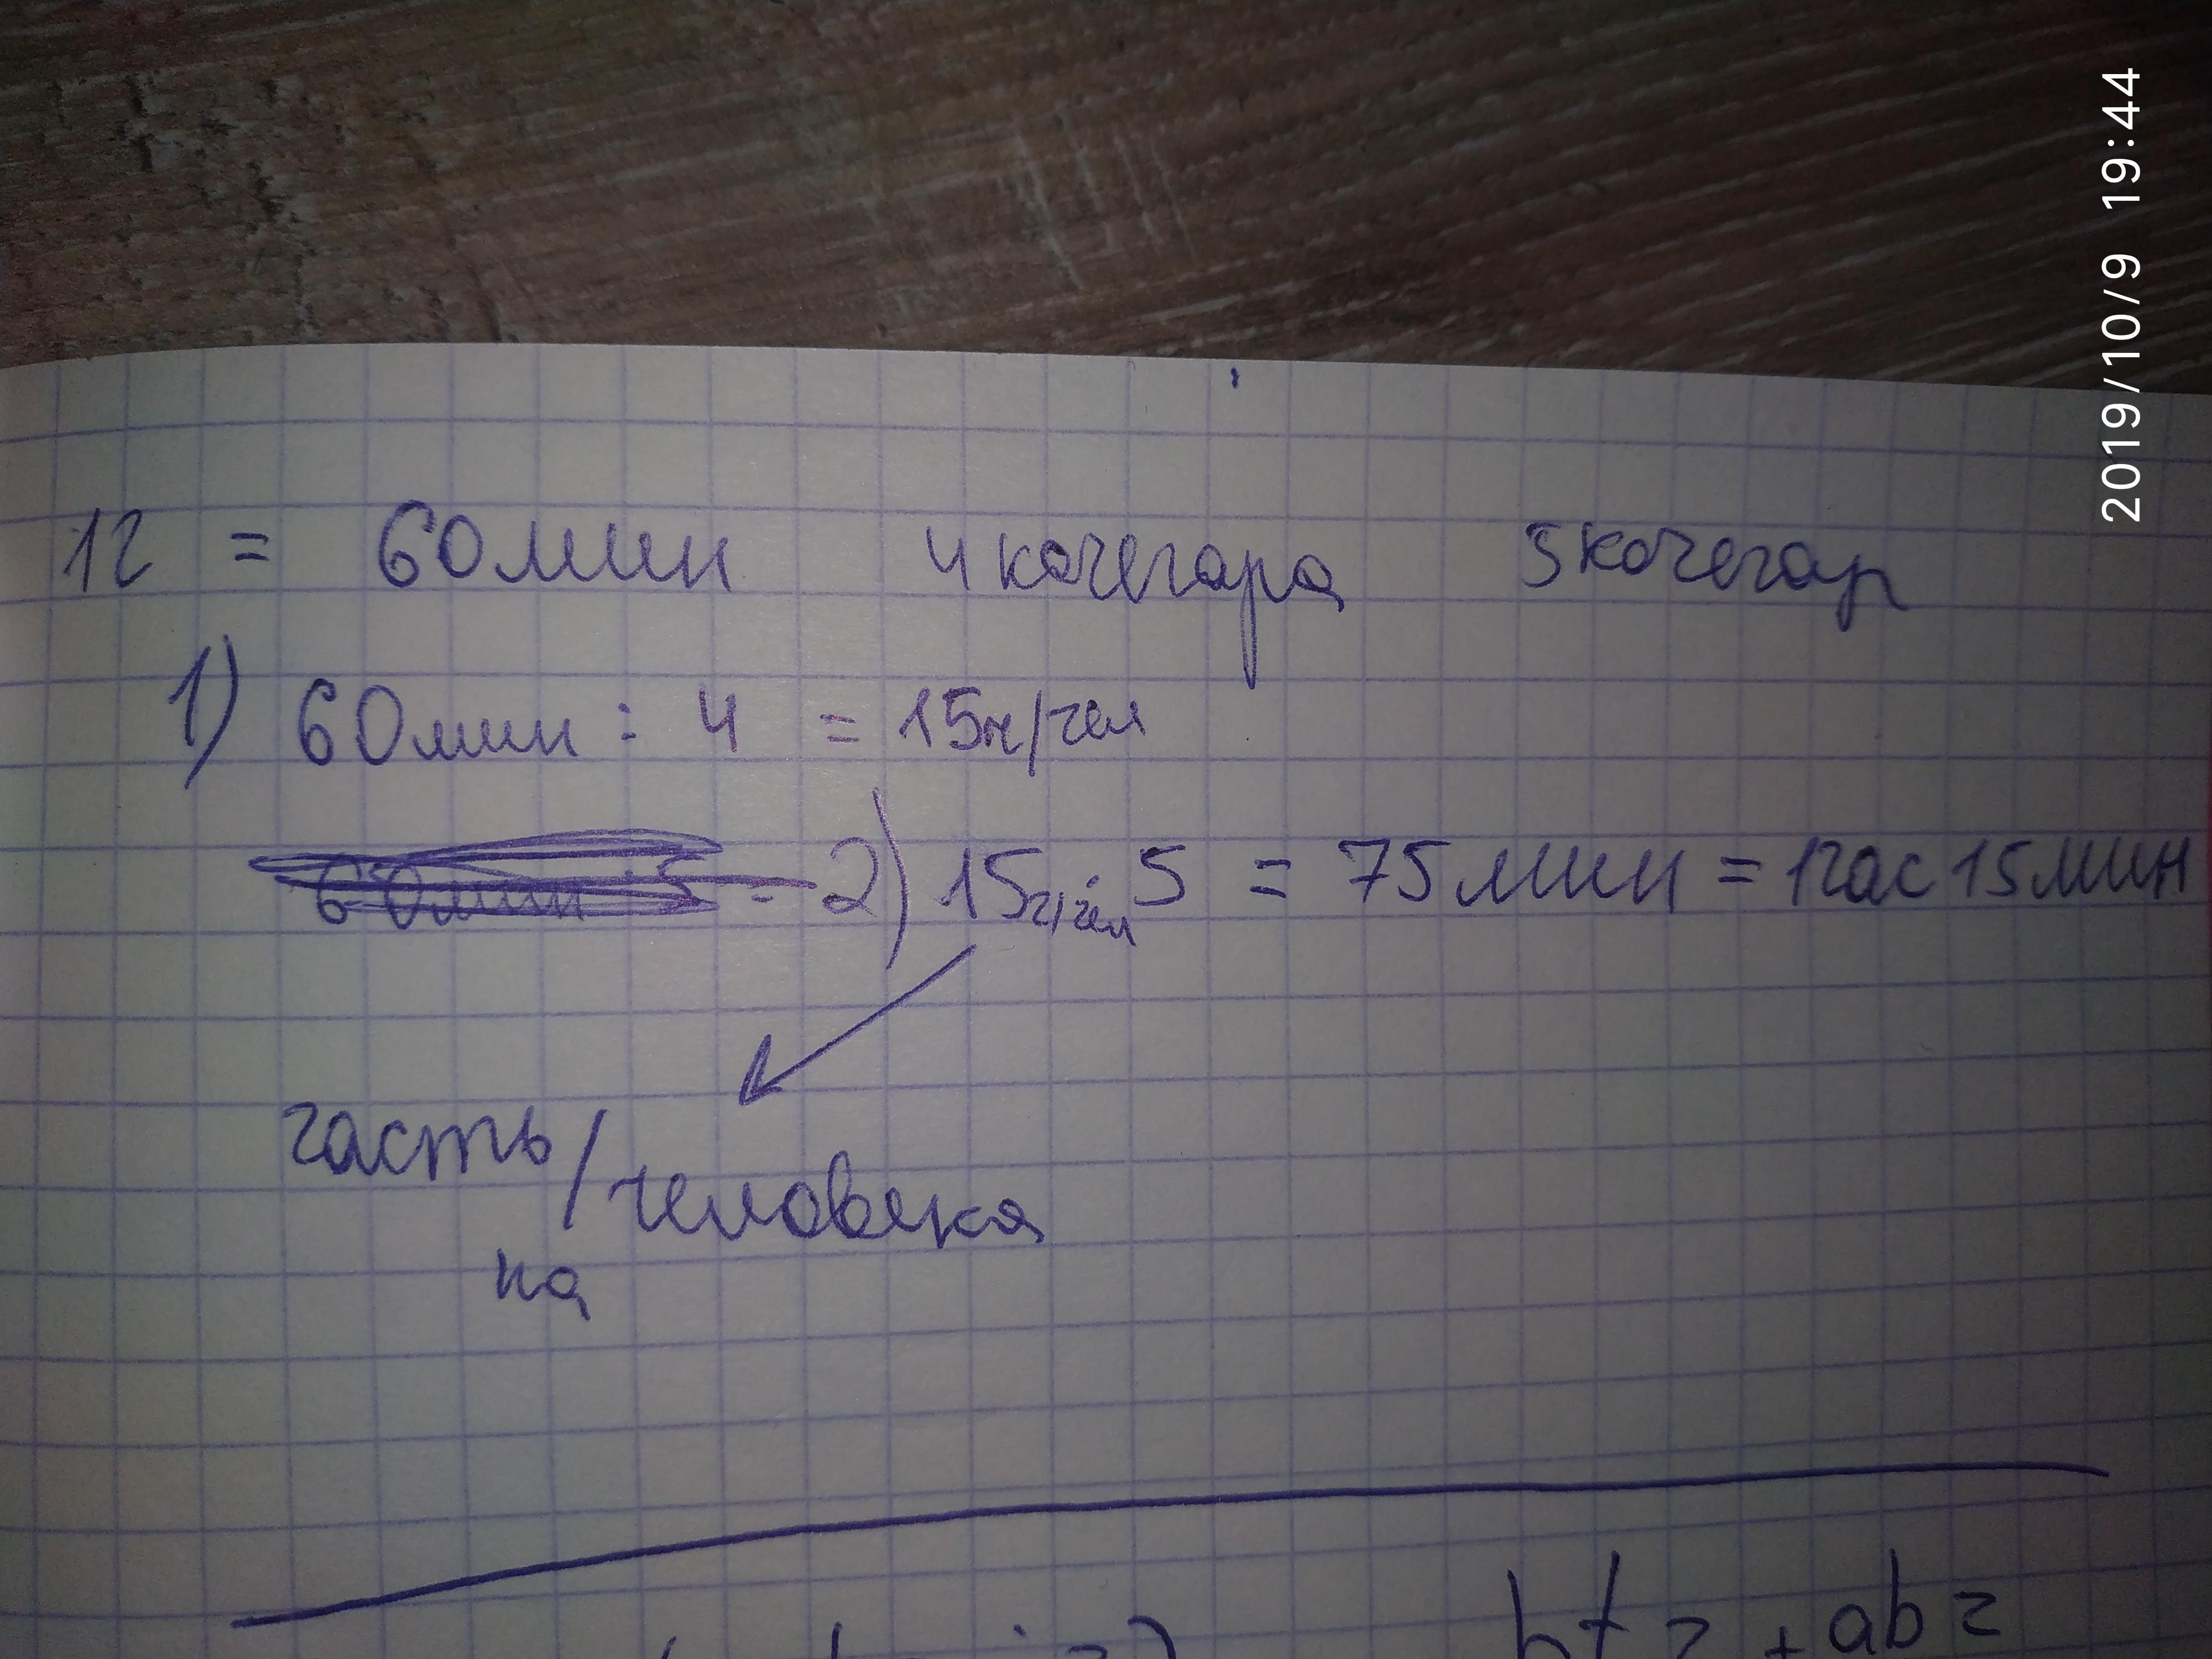 1ч = 60мин 4 кочегара 5 кочегар
1) 60мин : 4 = 15ч/чел
60мин : 5 = 2) 15ч/чел · 5 = 75 мин = 1 час 15 мин
часть/человека
на
+ abz
2019/10/9 19:44